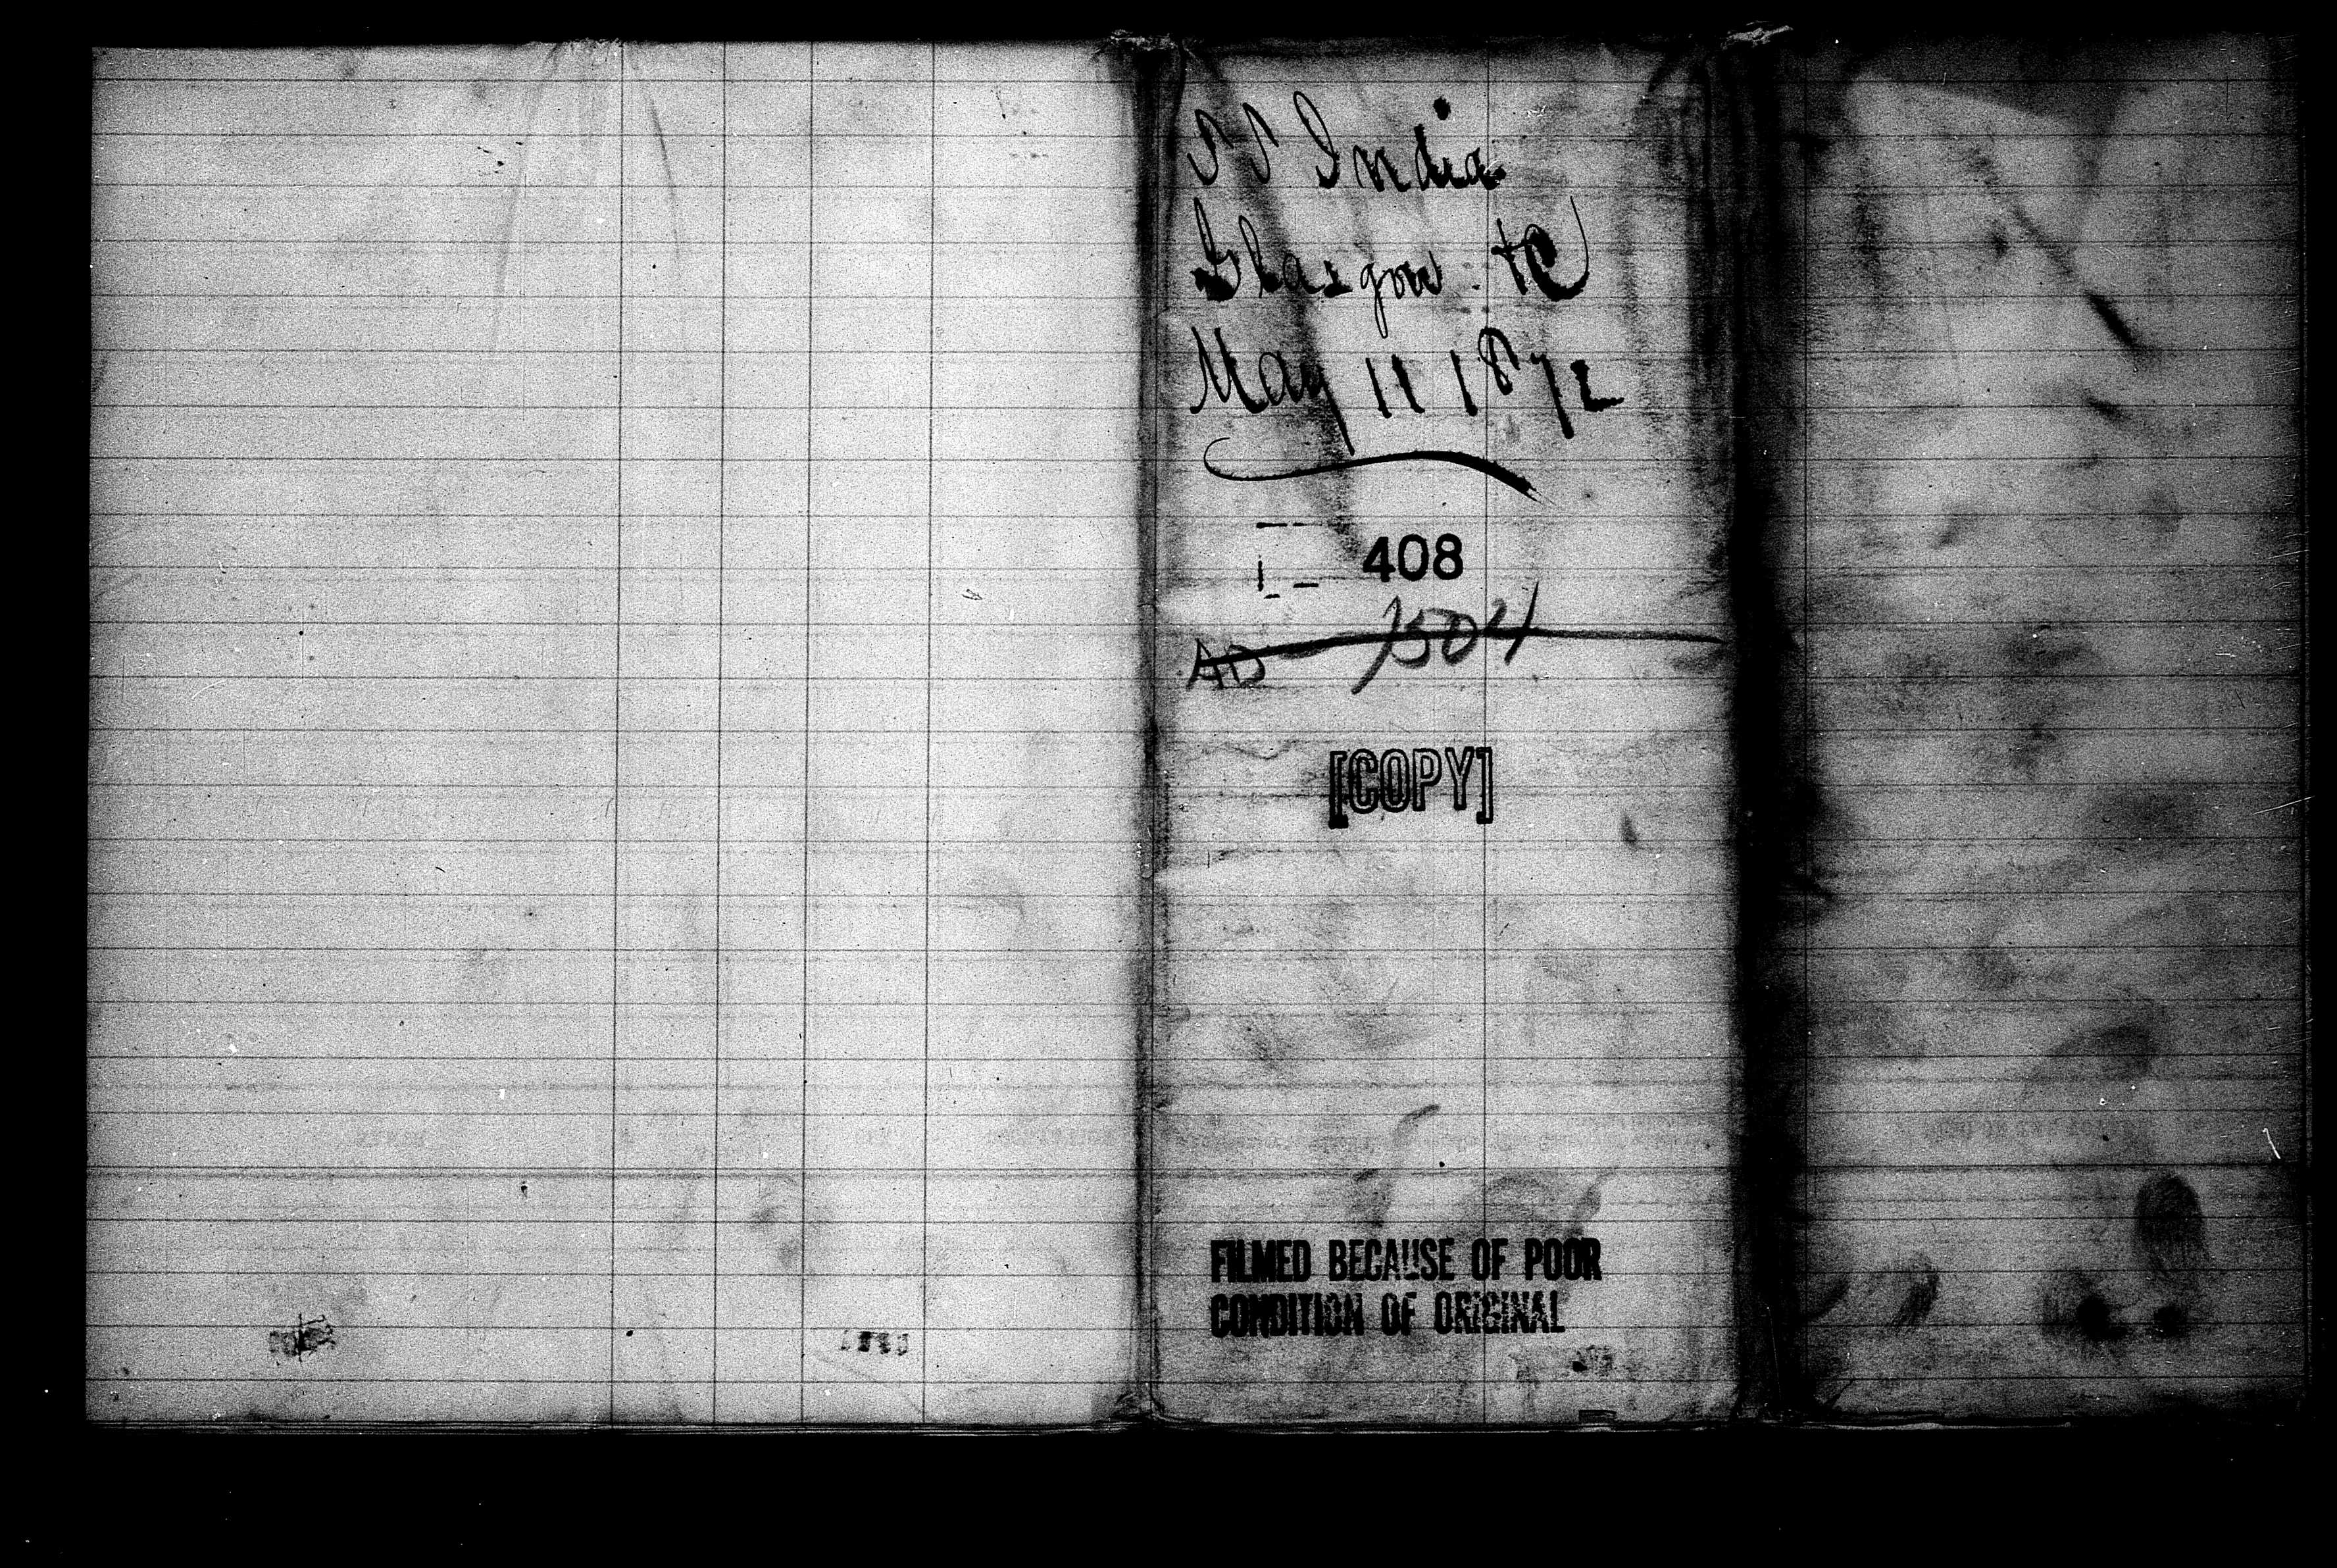 SS India
Glasgow &c
May 11 1872
408
AD 1504
[COPY]
FILMED BECAUSE OF POOR
CONDITION OF ORIGINAL